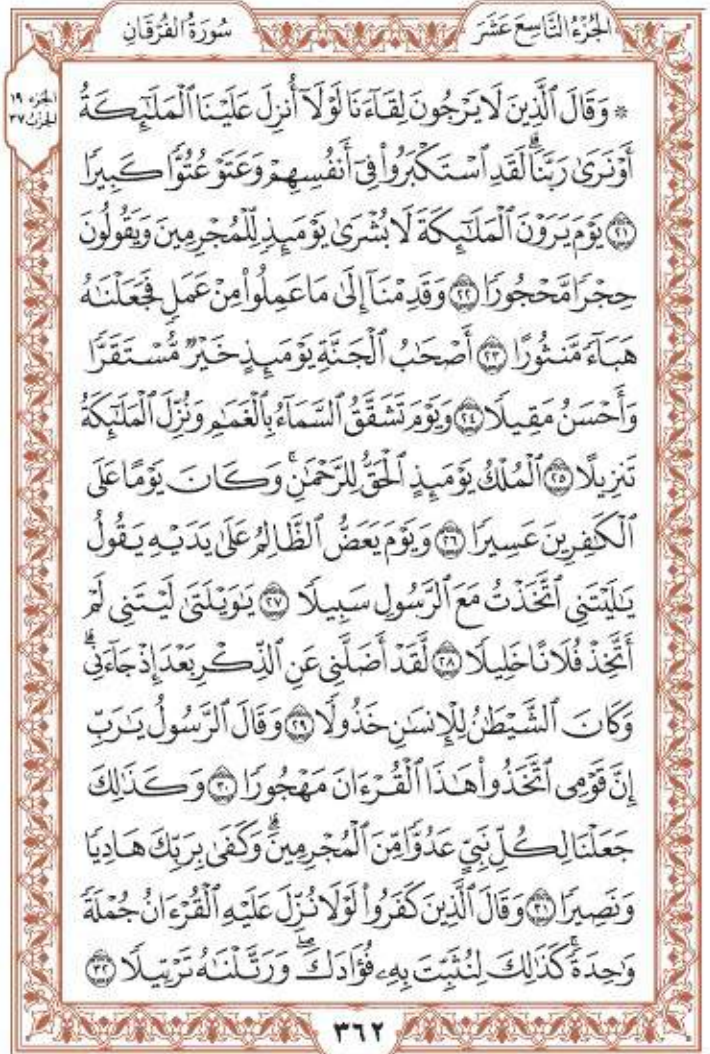 الجُزْءُ التَّاسِعَ عَشَرَ
سُورَةُ الفُرْقَانِ
الجزء ١٩
الحزب ٣٧
۞ وَقَالَ ٱلَّذِينَ لَا يَرْجُونَ لِقَآءَنَا لَوْلَآ أُنزِلَ عَلَيْنَا ٱلْمَلَٰٓئِكَةُ
أَوْ نَرَىٰ رَبَّنَاۗ لَقَدِ ٱسْتَكْبَرُوا۟ فِىٓ أَنفُسِهِمْ وَعَتَوْ عُتُوًّا كَبِيرًا
﴿٢١﴾ يَوْمَ يَرَوْنَ ٱلْمَلَٰٓئِكَةَ لَا بُشْرَىٰ يَوْمَئِذٍ لِّلْمُجْرِمِينَ وَيَقُولُونَ
حِجْرًا مَّحْجُورًا ﴿٢٢﴾ وَقَدِمْنَآ إِلَىٰ مَا عَمِلُوا۟ مِنْ عَمَلٍ فَجَعَلْنَٰهُ
هَبَآءً مَّنثُورًا ﴿٢٣﴾ أَصْحَٰبُ ٱلْجَنَّةِ يَوْمَئِذٍ خَيْرٌ مُّسْتَقَرًّا
وَأَحْسَنُ مَقِيلًا ﴿٢٤﴾ وَيَوْمَ تَشَقَّقُ ٱلسَّمَآءُ بِٱلْغَمَٰمِ وَنُزِّلَ ٱلْمَلَٰٓئِكَةُ
تَنزِيلًا ﴿٢٥﴾ ٱلْمُلْكُ يَوْمَئِذٍ ٱلْحَقُّ لِلرَّحْمَٰنِۚ وَكَانَ يَوْمًا عَلَى
ٱلْكَٰفِرِينَ عَسِيرًا ﴿٢٦﴾ وَيَوْمَ يَعَضُّ ٱلظَّالِمُ عَلَىٰ يَدَيْهِ يَقُولُ
يَٰلَيْتَنِى ٱتَّخَذْتُ مَعَ ٱلرَّسُولِ سَبِيلًا ﴿٢٧﴾ يَٰوَيْلَتَىٰ لَيْتَنِى لَمْ
أَتَّخِذْ فُلَانًا خَلِيلًا ﴿٢٨﴾ لَّقَدْ أَضَلَّنِى عَنِ ٱلذِّكْرِ بَعْدَ إِذْ جَآءَنِىۗ
وَكَانَ ٱلشَّيْطَٰنُ لِلْإِنسَٰنِ خَذُولًا ﴿٢٩﴾ وَقَالَ ٱلرَّسُولُ يَٰرَبِّ
إِنَّ قَوْمِى ٱتَّخَذُوا۟ هَٰذَا ٱلْقُرْءَانَ مَهْجُورًا ﴿٣٠﴾ وَكَذَٰلِكَ
جَعَلْنَا لِكُلِّ نَبِىٍّ عَدُوًّا مِّنَ ٱلْمُجْرِمِينَۗ وَكَفَىٰ بِرَبِّكَ هَادِيًا
وَنَصِيرًا ﴿٣١﴾ وَقَالَ ٱلَّذِينَ كَفَرُوا۟ لَوْلَا نُزِّلَ عَلَيْهِ ٱلْقُرْءَانُ جُمْلَةً
وَٰحِدَةًۚ كَذَٰلِكَ لِنُثَبِّتَ بِهِۦ فُؤَادَكَۖ وَرَتَّلْنَٰهُ تَرْتِيلًا ﴿٣٢﴾
٣٦٢